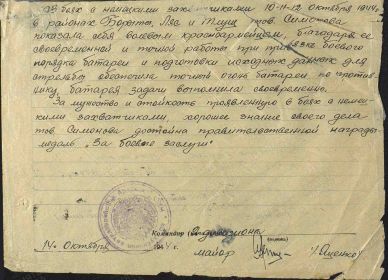 В боях с немецкими захватчиками 10-11-12 октября 1944г
в районах тов. Симонова
показала себя боевым красноармейцем, благодаря ее
своевременной и точной работы при привязке боевого
порядка батареи и подготовки исходных данных для
стрельбы обеспечила точный огонь батареи по против-
нику, батарея задачи выполнила своевременно.
За мужество и стойкость проявленную в боях с немец-
кими захватчиками, хорошее знание своего дела
тов. Симонова достойна правительственной награды
медаль "За боевые заслуги"
Командир дивизиона
14 Октября 1944 г. майор /Яценко/